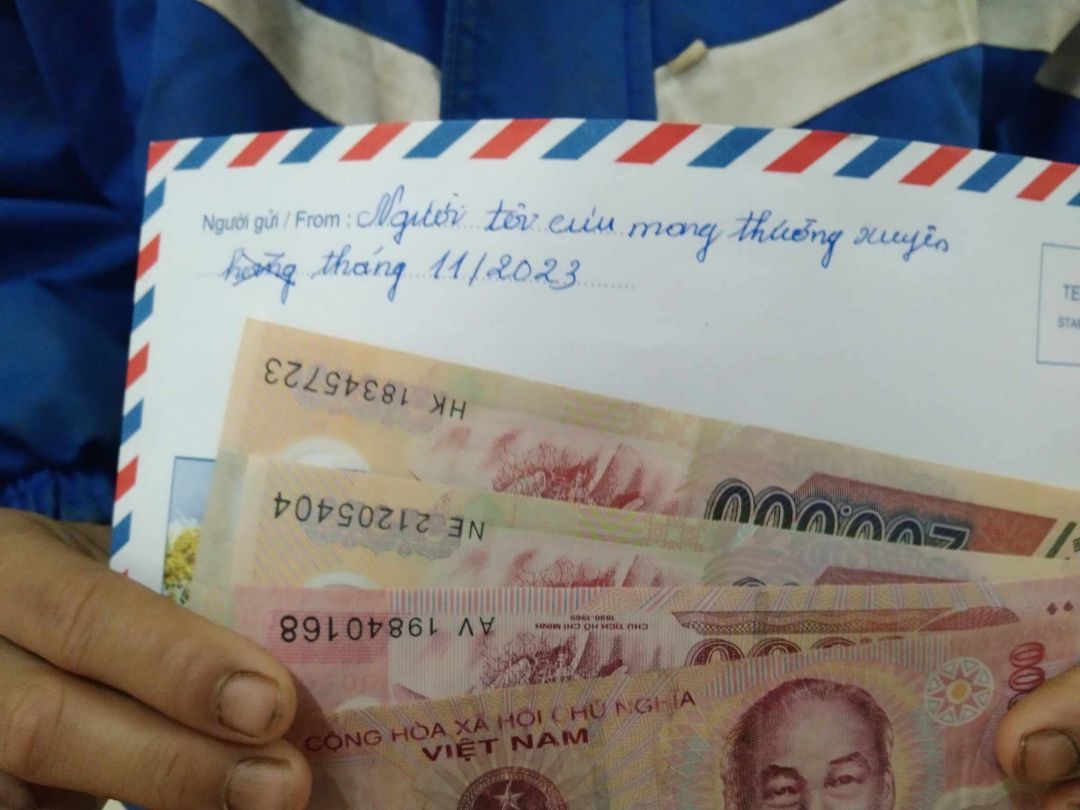 Người gửi / From : Người tôi cưu mang thường xuyên
hàng tháng 11/2023
TE
STAM
HK 18345723
200.000
NE 21205404
AV 19840168
CHỦ TỊCH HỒ CHÍ MINH
1890-1969
CỘNG HÒA XÃ HỘI CHỦ NGHĨA
VIỆT NAM